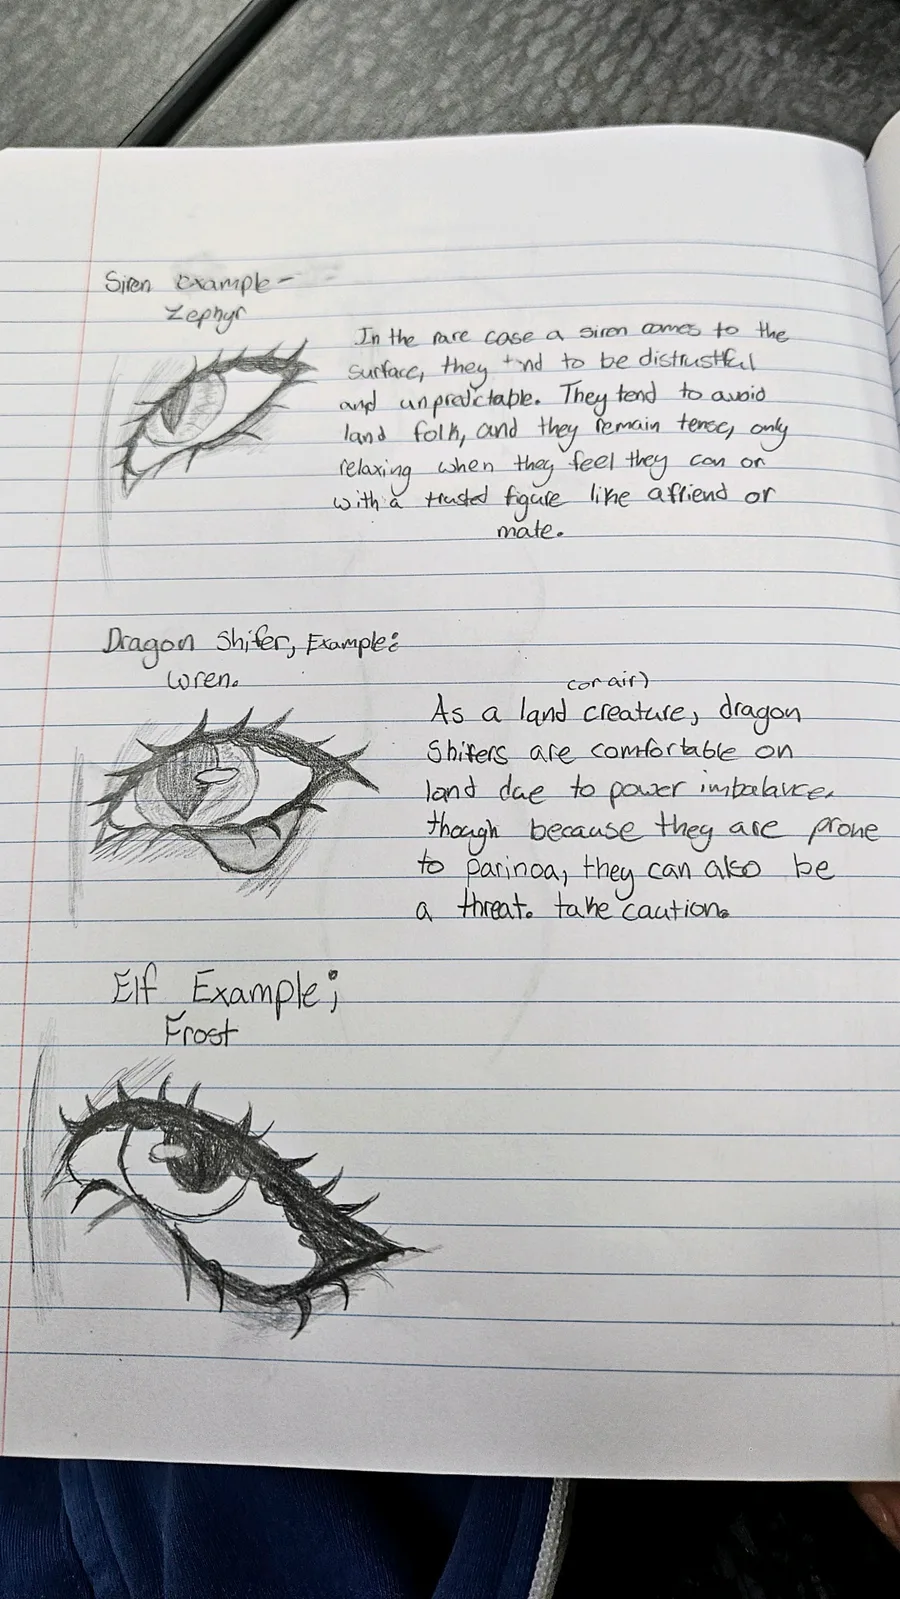 Siren example -
Zephyr
In the rare case a siren comes to the
surface, they tend to be distrustful
and unpredictable. They tend to avoid
land folk, and they remain tense, only
relaxing when they feel they can or
with a trusted figure like a friend or
mate.
Dragon Shifer, Example:
Wren.
(or air)
As a land creature, dragon
Shifers are comfortable on
land due to power imbalance.
though because they are prone
to parinoa, they can also be
a threat. take caution.
Elf Example;
Frost